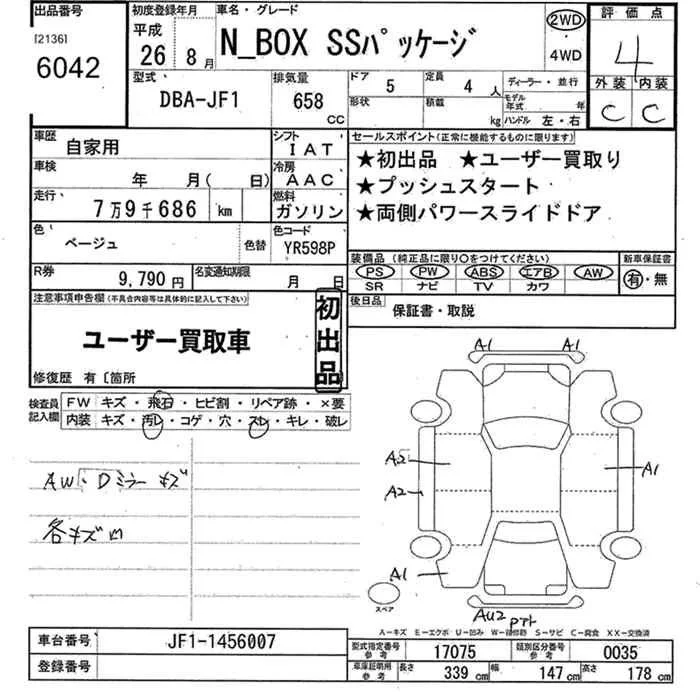 出品番号
[2136]
6042
初度登録年月
平成
26 8 月
車名・グレード
N_BOX SSパッケージ
2WD
・
4WD
評価点
4
外装 内装
C C
型式
DBA-JF1
排気量
658
CC
ドア 5
定員 4 人
形状
積載 kg
ディーラー・並行
モデル年式 年
ハンドル 左・右
車歴 自家用
シフト IAT
車検 年 月( 日)
冷房 AAC
走行 7万9千686 km
燃料 ガソリン
色 ベージュ
色替
色コード YR598P
R券 9,790 円
名変通知期限 月 日
セールスポイント(正常に機能するものに限ります)
★初出品 ★ユーザー買取り
★プッシュスタート
★両側パワースライドドア
装備品 (純正品に限り○をつけてください)
新車保証書
PS PW ABS エアB AW
SR ナビ TV カワ
有・無
後日品
保証書・取説
注意事項申告欄(不具合内容等は具体的に記入して下さい)
初出品
ユーザー買取車
修復歴 有〔箇所
検査員
記入欄
FW キズ・飛石・ヒビ割・リペア跡・×要
内装 キズ・汚レ・コゲ・穴・スレ・キレ・破レ
AW、Dミラーキズ
各キズm
A1 A1
A2 A1
A2
A1
スペア
AU2
A-キズ E-エクボ U-凹み W-補修跡 S-サビ C-腐食 XX-交換済
車台番号 JF1-1456007
登録番号
型式指定番号
参考
17075
類別区分番号
参考
0035
車庫証明用
参考
長さ 339 cm
幅 147 cm
高さ 178 cm